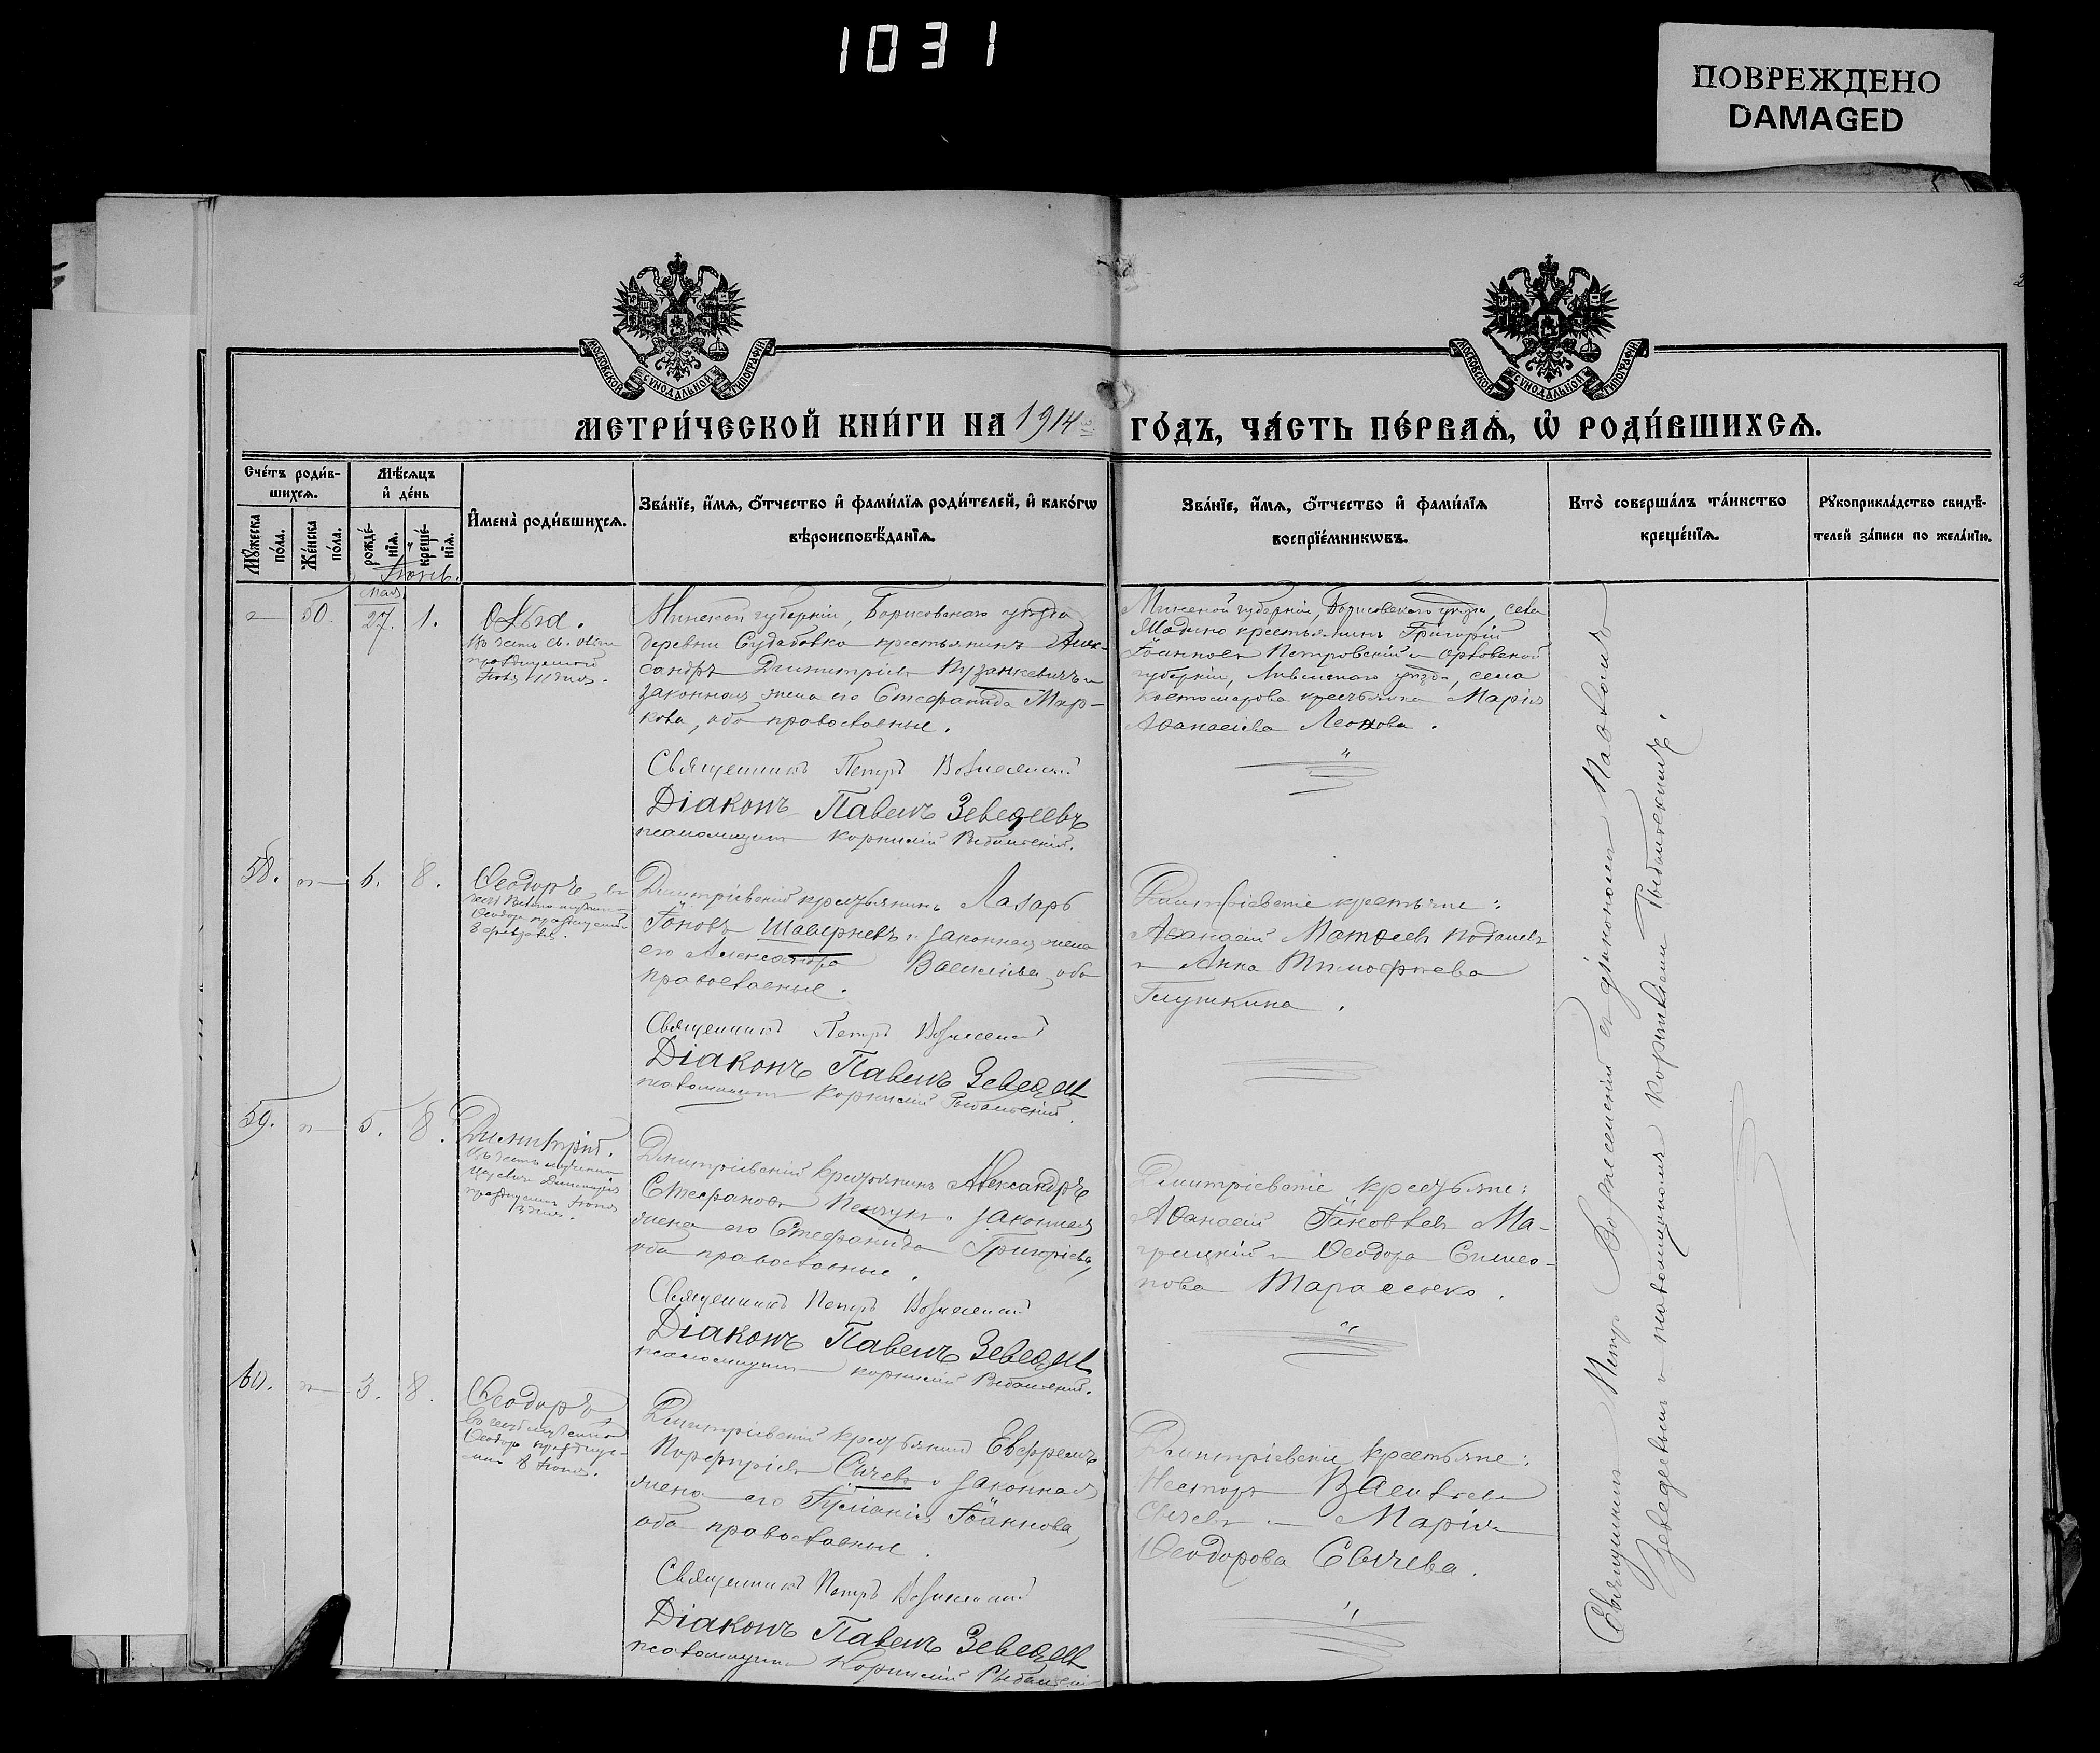 1031
ПОВРЕЖДЕНО
DAMAGED
МОСКОВСКОЙ СѴНОДАЛЬНОЙ ТИПОГРАФІИ
МОСКОВСКОЙ СѴНОДАЛЬНОЙ ТИПОГРАФІИ
МЕТРИ́ЧЕСКОЙ КНИ́ГИ НА 1914
ГО́ДЪ, ЧА́СТЬ ПЕ́РВАѦ, Ѡ҆ РОДИ́ВШИХСѦ.
Сче́тъ роди́в-
шихсѧ.
Мꙋ́жеска
по́ла.
Же́нска
по́ла.
Мѣ́сѧцъ
и҆ де́нь
рожде́-
нїѧ.
креще́-
нїѧ.
Іюнь.
И҆мена̀ роди́вшихсѧ.
Зва́нїе, и҆́мѧ, ѻ҆́тчество и҆ фами́лїѧ роди́телей, и҆ како́гѡ
вѣроисповѣ́данїѧ.
Зва́нїе, и҆́мѧ, ѻ҆́тчество и҆ фами́лїѧ
воспрїе́мникѡвъ.
Кто̀ соверша́лъ та́инство
креще́нїѧ.
Рꙋкоприкла́дство свидѣ́-
телей за́писи по жела́нїю.
50.
Мая
27.
1.
Ольга.
въ честь св. Ольги
празднуемой
Іюля 11 дня.
Минской губерніи, Борисовскаго уѣзда
деревни Судабовка крестьянинъ Алек-
сандръ Димитріевъ Пузанкевичъ и
законная жена его Стефанида Мар-
кова, оба православные.
Священникъ Петръ Вознесенскій
Діаконъ Павелъ Зеведеевъ
псаломщикъ Корнилій Рыбалскій.
Минской губерніи, Борисовскаго уѣзда, села
крестьянинъ Григорій
Іоанновъ Петровскій и Орловской
губерніи, Ливенскаго уѣзда, села
Костомарова крестьянка Марія
Аѳанасіева Леонова.
58.
6.
8.
Ѳеодоръ, въ
честь Великомученика
Ѳеодора празднуемаго
8 февраля.
Димитріевскій крестьянинъ Лазарь
Іоновъ Шавырневъ и законная жена
его Александра Васильева, оба
православные.
Священникъ Петръ Вознесенскій
Діаконъ Павелъ Зеведеевъ
псаломщикъ Корнилій Рыбалскій.
Димитріевскіе крестьяне:
Аѳанасій Матѳеевъ
и Анна Тимофѣева
Глушкина.
59.
5.
8.
Димитрій.
въ честь мученика
Царевича Димитрія
празднуемаго Іюня
3 дня.
Димитріевскій крестьянинъ Александръ
Стефановъ Пенчукъ и законная
жена его Стефанида Григорьева,
оба православные.
Священникъ Петръ Вознесенскій
Діаконъ Павелъ Зеведеевъ
псаломщикъ Корнилій Рыбалскій.
Димитріевскіе крестьяне:
Аѳанасій Іаковлевъ Ма-
грицкій и Ѳеодора Симео-
нова Тарасенко.
60.
3.
8.
Ѳеодоръ
въ честь мученика
Ѳеодора празднуе-
маго 8 Іюня.
Димитріевскій крестьянинъ Евфремъ
Порфиріевъ Сычевъ и законная
жена его Іуліанія Іоаннова,
оба православные.
Священникъ Петръ Вознесенскій
Діаконъ Павелъ Зеведеевъ
псаломщикъ Корнилій Рыбалскій
Димитріевскіе крестьяне:
Несторъ
Сычевъ и Марія
Ѳеодорова Сычева.
Священникъ Петръ Вознесенскій съ діакономъ Павломъ
Зеведеевымъ и псаломщикомъ Корниліемъ Рыбалскимъ.